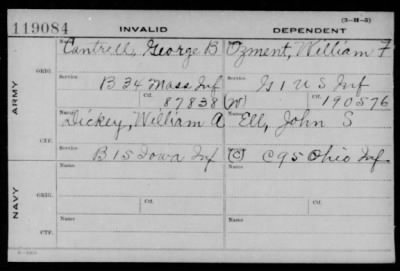 119084
INVALID
DEPENDENT
(3-H-5)
Name
Cantrell, George B
Ozment, William F
ARMY
ORIG.
Service
B 34 Mass Inf
Service
G 1 U S Inf
Ctf.
87838
(W)
Ctf.
190576
CTF.
Name
Dickey, William A
Name
Ell, John S
Service
B 15 Iowa Inf
(C)
C 95 Ohio Inf.
NAVY
ORIG.
Name
Ctf.
Name
Ctf.
CTF.
Name
Name